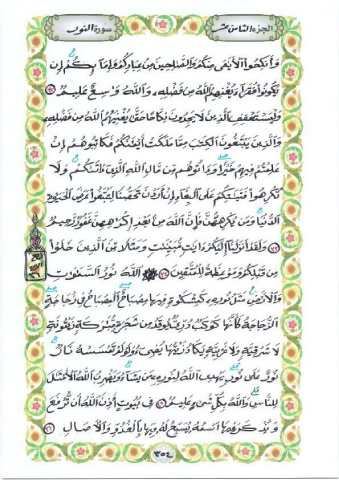 الجزء الثامن عشر سورة النور
وأنكحوا الأيمى منكم والصلحين من عبادكم وإمائكم إن
يكونوا فقراء يغنهم الله من فضله والله وسع عليم ٣٢
وليستعفف الذين لا يجدون نكاحا حتى يغنيهم الله من فضله
والذين يبتغون الكتب مما ملكت أيمنكم فكاتبوهم إن
علمتم فيهم خيرا وءاتوهم من مال الله الذي ءاتىكم ولا
تكرهوا فتيتكم على البغاء إن أردن تحصنا لتبتغوا عرض الحيوة
الدنيا ومن يكرههن فإن الله من بعد إكرههن غفور رحيم
٣٣ ولقد أنزلنا إليكم ءايت مبينت ومثلا من الذين خلوا
من قبلكم وموعظة للمتقين ٣٤ الله نور السموت
والأرض مثل نوره كمشكوة فيها مصباح المصباح في زجاجة
الزجاجة كأنها كوكب دري يوقد من شجرة مبركة زيتونة
لا شرقية ولا غربية يكاد زيتها يضيء ولو لم تمسسه نار
نور على نور يهدي الله لنوره من يشاء ويضرب الله الأمثل
للناس والله بكل شيء عليم ٣٥ في بيوت أذن الله أن ترفع
ويذكر فيها اسمه يسبح له فيها بالغدو والآصال ٣٦
٣٥٤